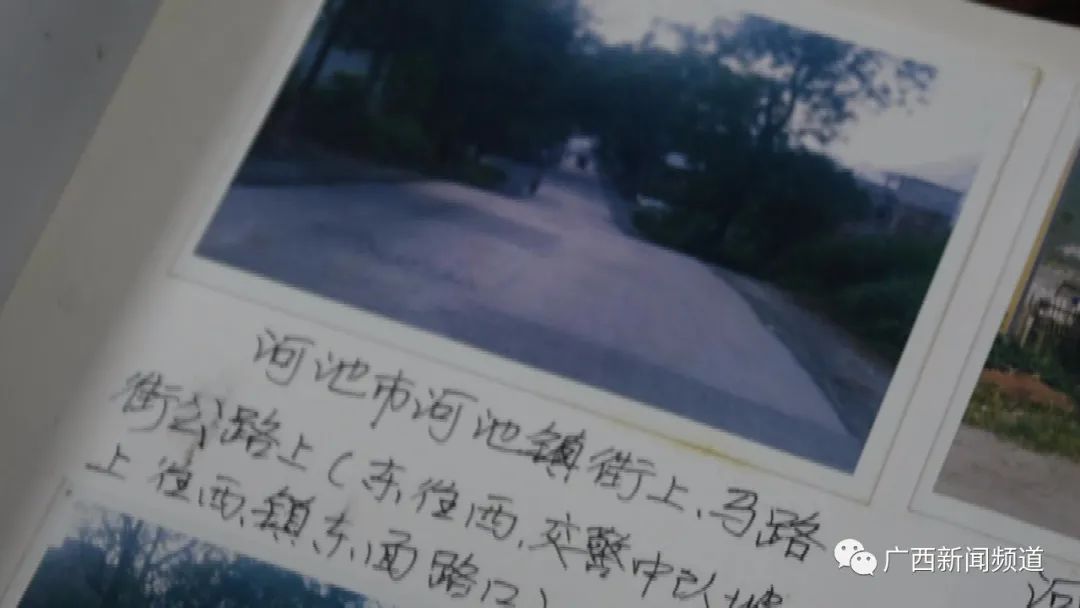 河池市河池镇街上、马路
街公路上(东往西,交警中队坡
上往西、镇东面路口)
河
广西新闻频道